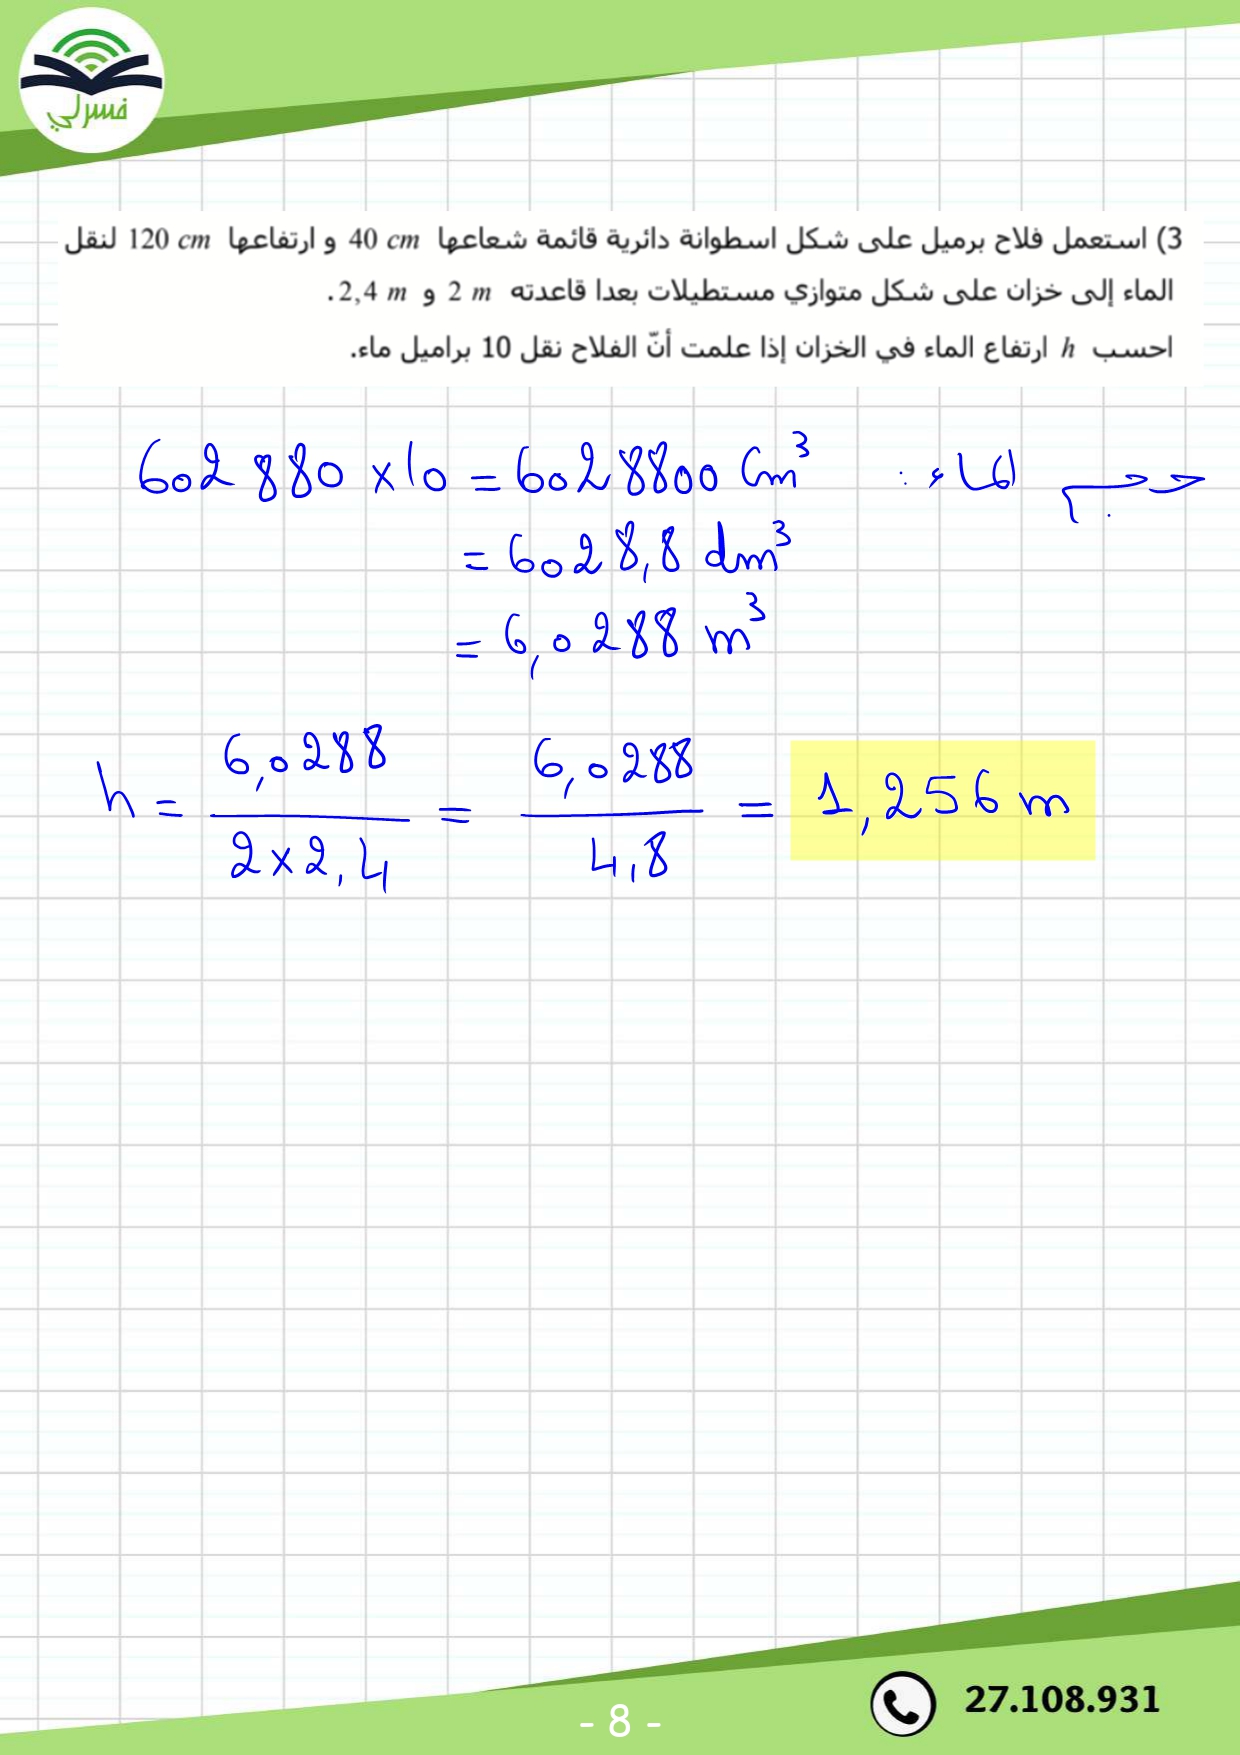 فسرلي
3) استعمل فلاح برميل على شكل اسطوانة دائرية قائمة شعاعها 40 cm و ارتفاعها 120 cm لنقل
الماء إلى خزان على شكل متوازي مستطيلات بعدا قاعدته 2 m و 2,4 m .
احسب h ارتفاع الماء في الخزان إذا علمت أنّ الفلاح نقل 10 براميل ماء.
حجم الماء : 602 880 × 10 = 6028800 Cm³
= 6028,8 dm³
= 6,0288 m³
h = 6,0288 / 2 × 2,4 = 6,0288 / 4,8 = 1,256 m
27.108.931
- 8 -